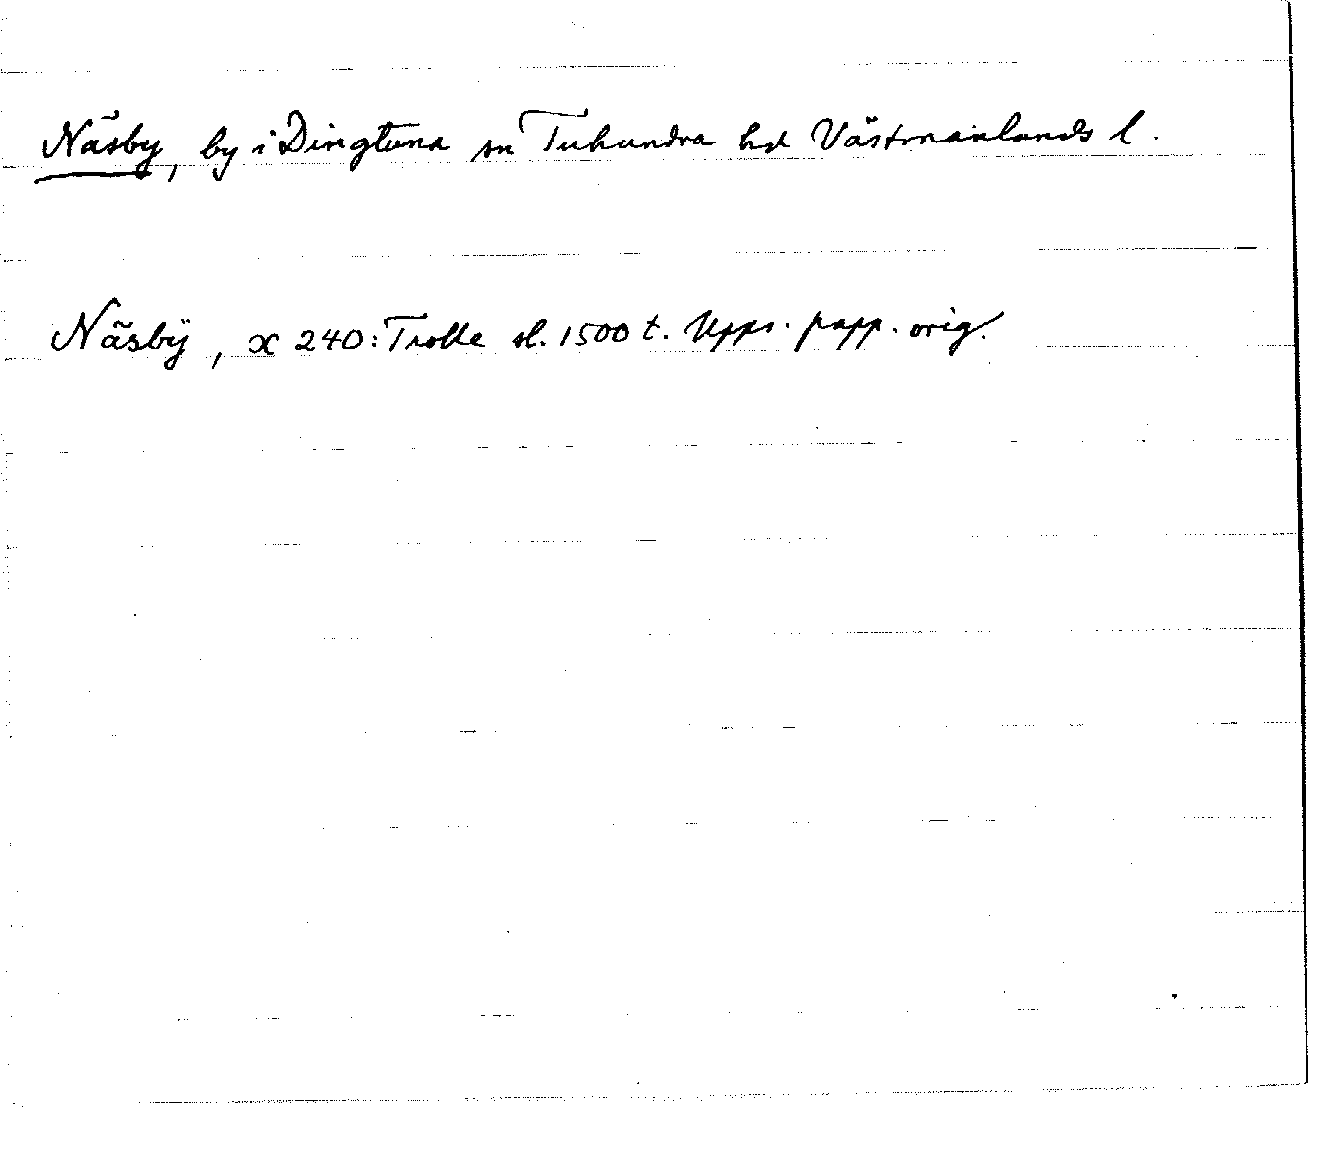 Näsby, by i Dingtuna sn Tuhundra hd Västmanlands l.
Näsbÿ, x 240: Trolle sl. 1500 t. Upps. papp. orig.